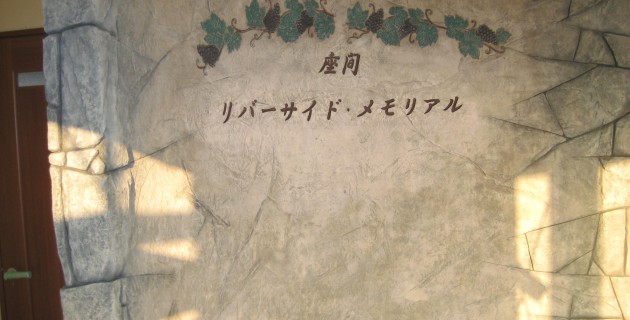 座间
リバーサイド・メモリアル